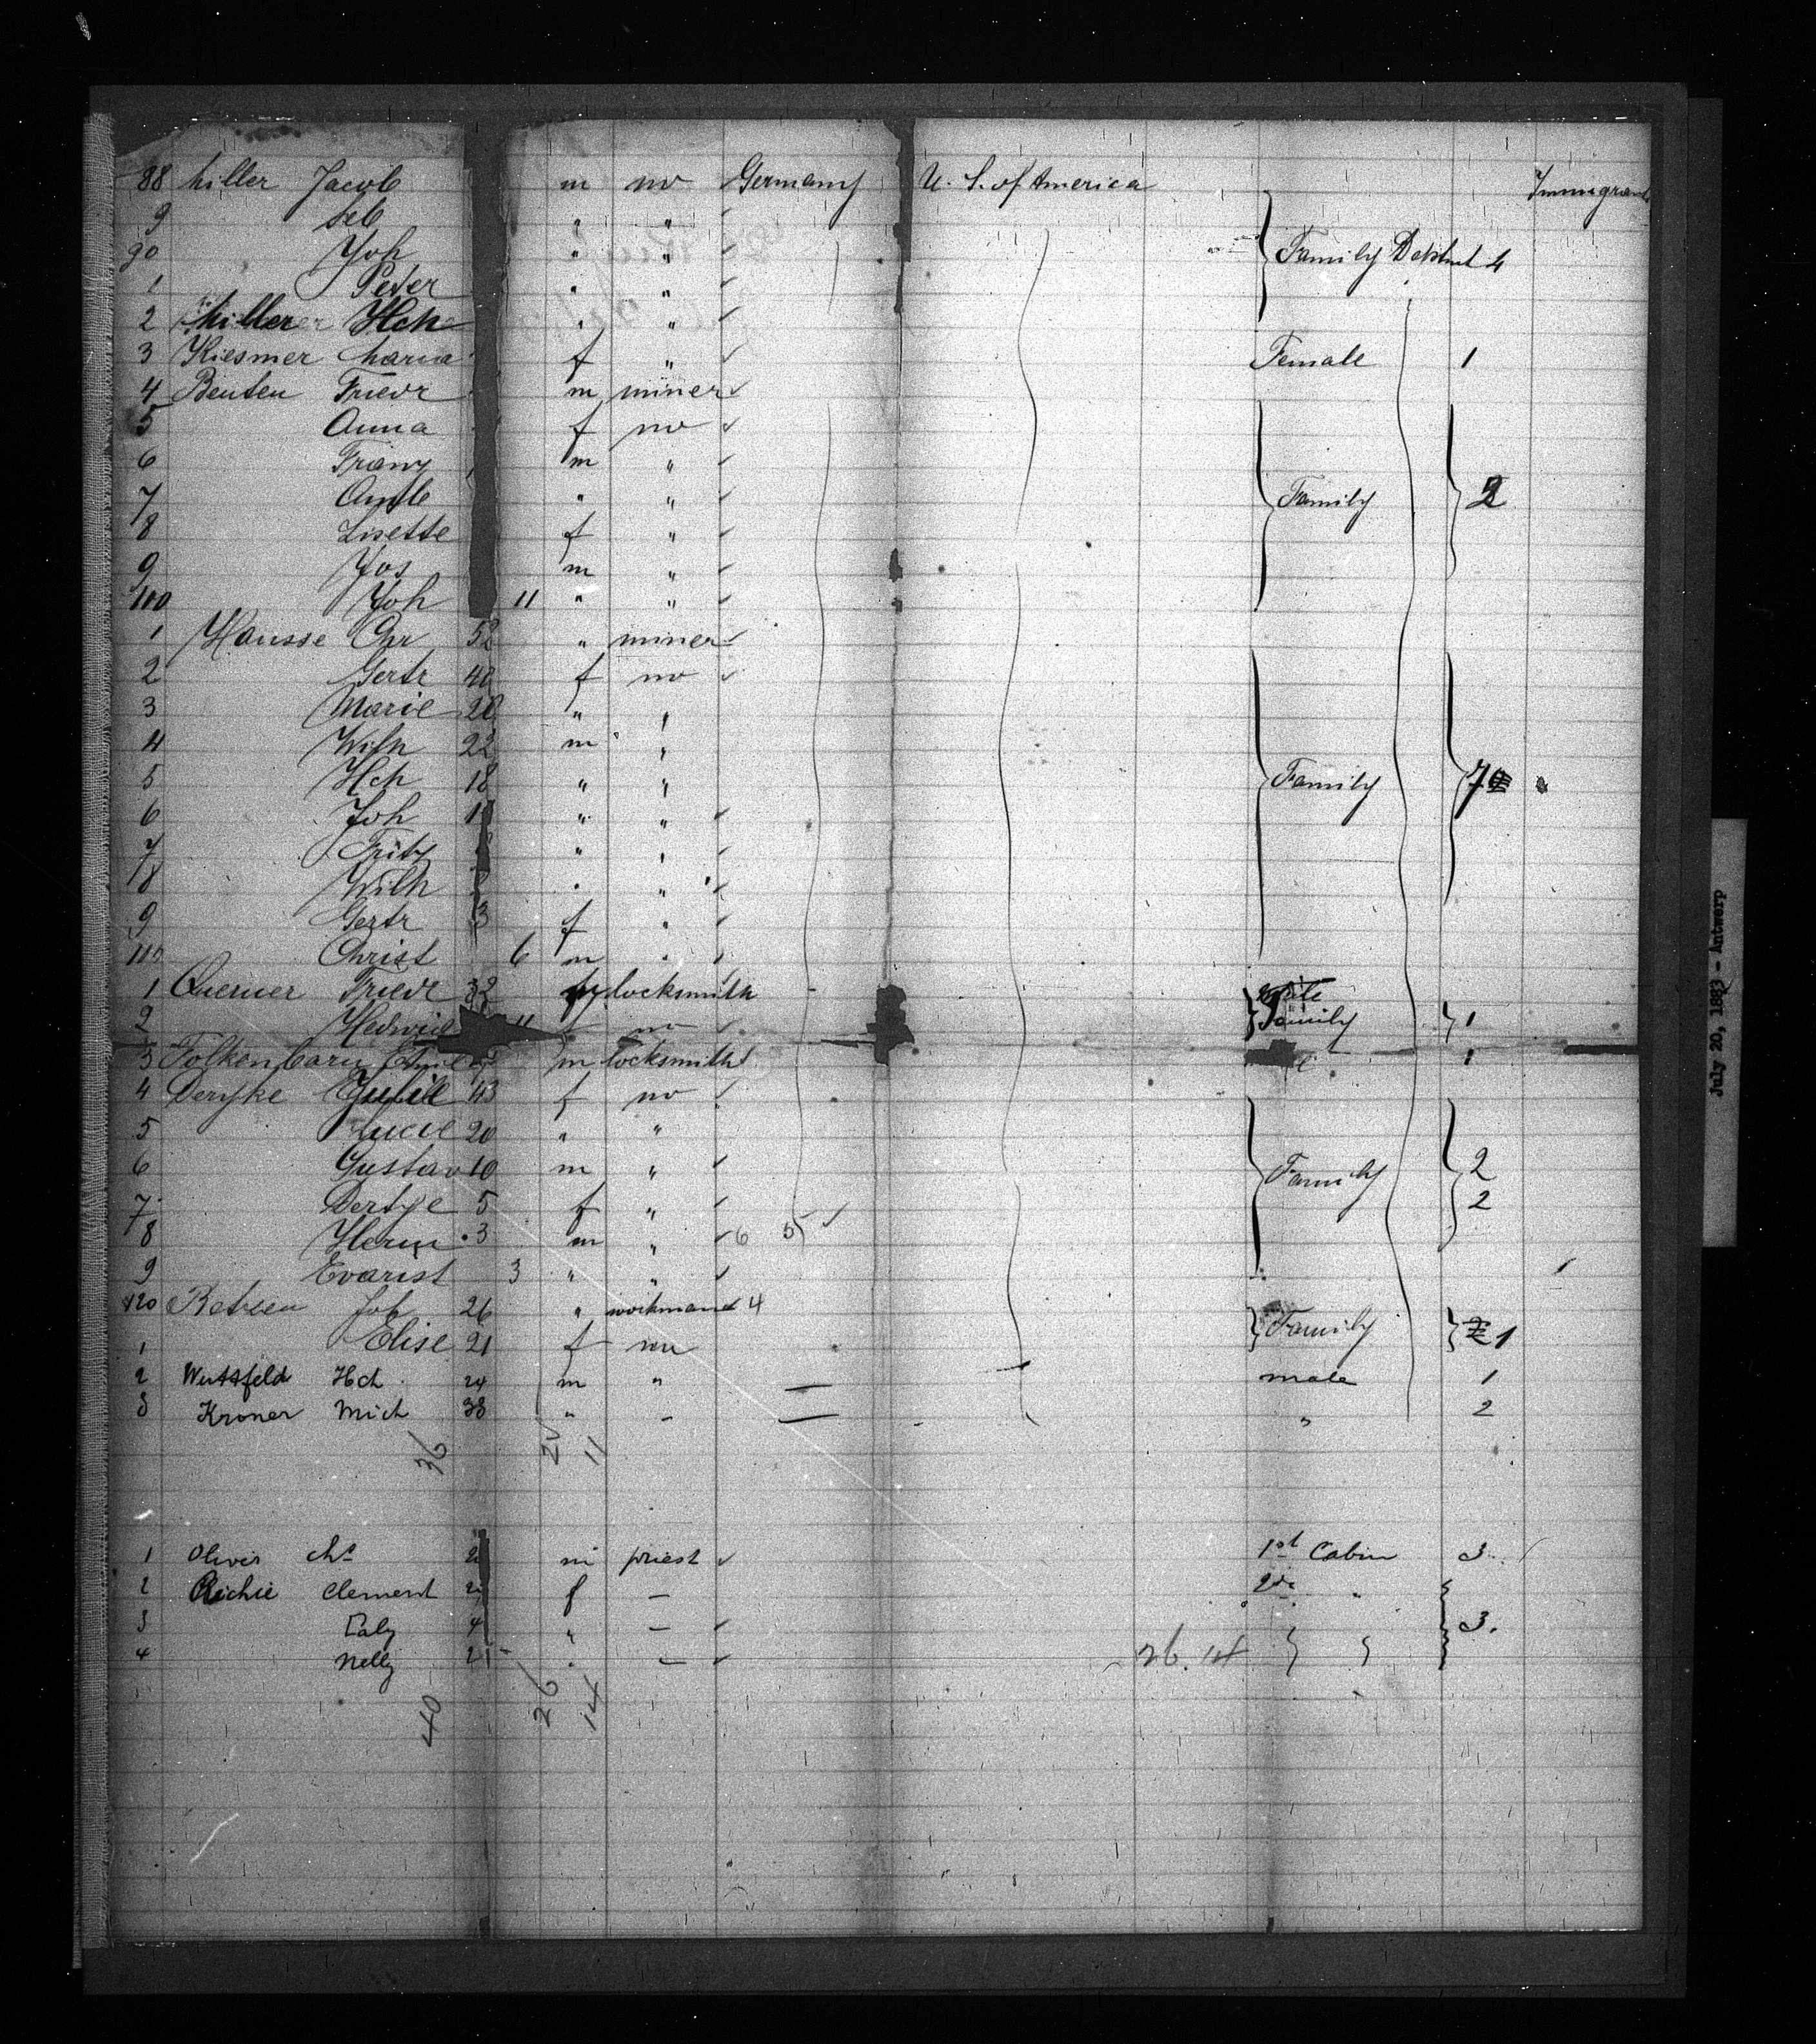 88 Miller Jacob m no Germany U. S. of America Immigrant
9 Seb " "
90 Joh " " Family 4
1 Peter " "
2 Miller Hch " "
3 Kiesmer Maria f " Female 1
4 Beuten Friedr m miner
5 Anna f no
6 Franz m "
7 " " Family 2
8 Lisette f "
9 Jos m "
100 Joh 11 " "
1 Hausse Chr 52 " miner
2 Gertr 40 f no
3 Marie 20 " "
4 Wilh 22 m "
5 Hch 18 " " Family 7
6 Joh " "
7 Fritz " "
8 Wilh " "
9 Gertr 3 f "
110 Christ 6 m "
1 Querner Friedr 32 locksmith
2 Hedwig 11 f no Family 1
3 m locksmith 1
4 Deryke 43 f no
5 Lucie 20 " "
6 Gustav 10 m " Family 2
7 Dertje 5 f " 2
8 Herm 3 m " 6 35
9 Evarist 3 " "
120 Betzen Joh 26 " workman 4 Family 1
1 Elise 21 f no
2 Wuttfeld Hch 24 m " male 1
3 Kroner Mich 38 " " 2
36 25 11
1 Olivis m priest 1st Cabin 3
2 Richie Clement f — 2d "
3 4 " — 3.
4 Nelly 2 " — 26. 14
40 26 14
July 20, 1883 - Antwerp